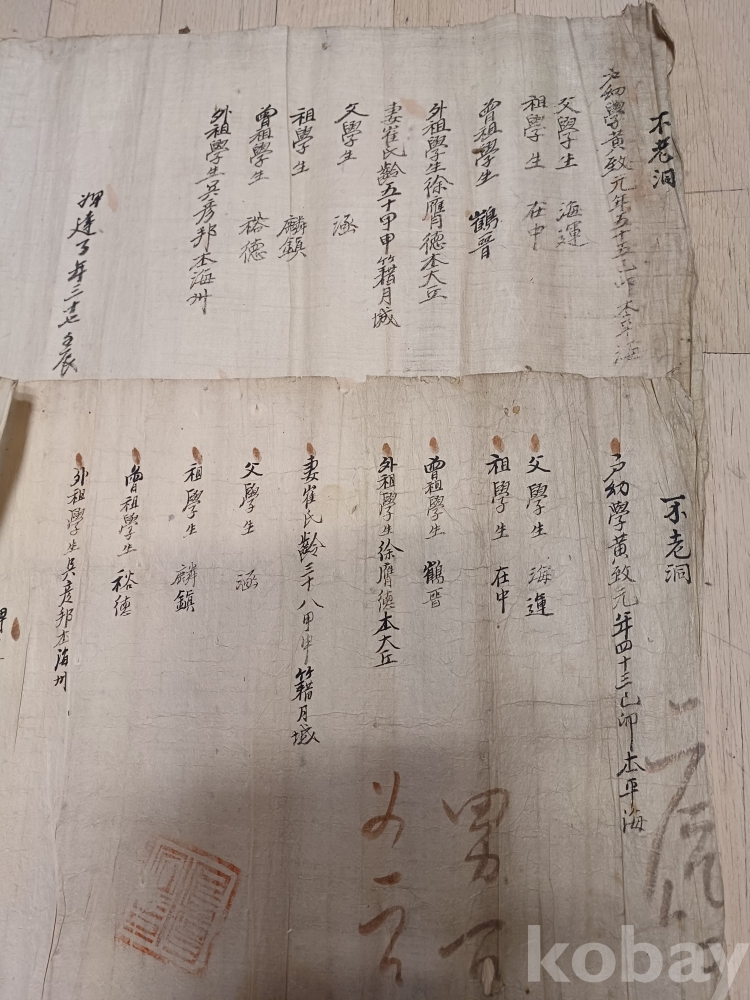 不老洞
戶幼學黃致元年五十五己卯本平海
父學生海運
祖學生在中
曾祖學生鶴晉
外祖學生徐膺德本大丘
妻崔氏齡五十甲申籍月城
父學生涵
祖學生麟鎮
曾祖學生裕德
外祖學生吳彥邦本海州
不老洞
戶幼學黃致元年四十三己卯本平海
父學生海運
祖學生在中
曾祖學生鶴晉
外祖學生徐膺德本大丘
妻崔氏齡三十八甲申籍月城
父學生涵
祖學生麟鎮
曾祖學生裕德
外祖學生吳彥邦本海州
kobay